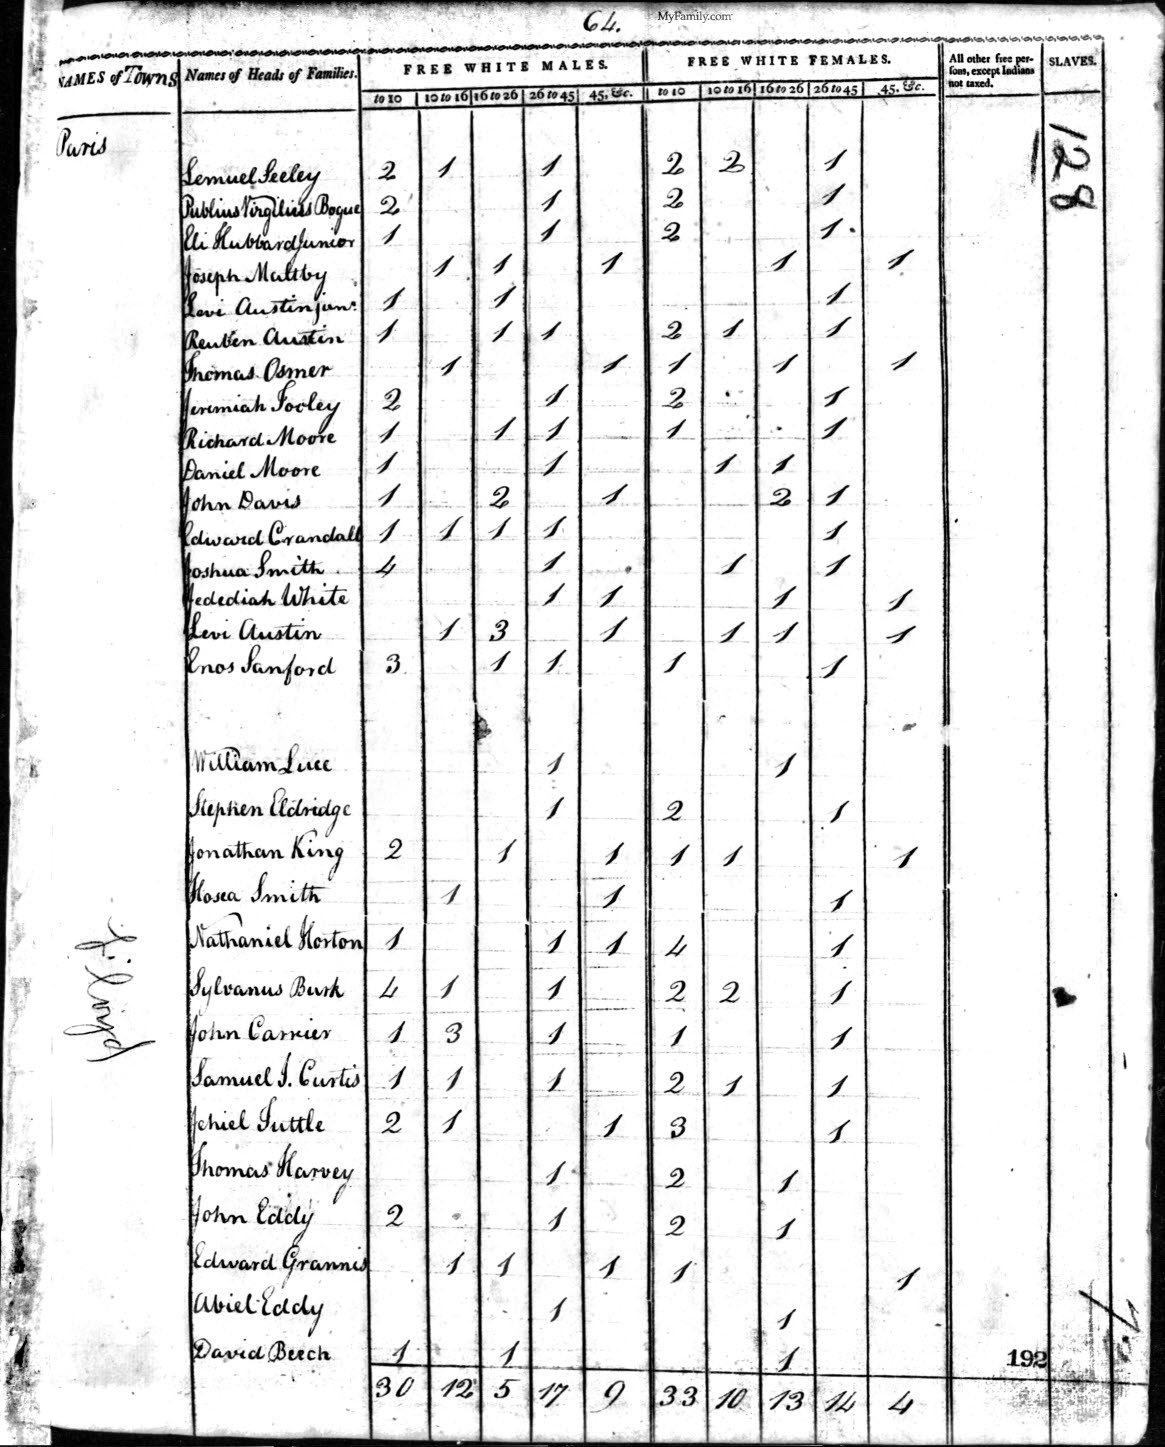 64. MyFamily.com
NAMES of Towns Names of Heads of Families. FREE WHITE MALES. FREE WHITE FEMALES. All other free per- SLAVES.
sons, except Indians
not taxed.
to 10 10 to 16 16 to 26 26 to 45 45, &c. to 10 10 to 16 16 to 26 26 to 45 45, &c.
Paris 128
Lemuel Seeley 2 1 1 2 2 1
Publius Virgilius Bogue 2 1 2 1
Eli Hubbard Junior 1 1 2 1
Joseph Maltby 1 1 1 1 1
Levi Austin junr. 1 1 1
Reuben Austin 1 1 1 2 1 1
Thomas Osmer 1 1 1 1 1
Jeremiah Tooley 2 1 2 1
Richard Moore 1 1 1 1 1
Daniel Moore 1 1 1 1
John Davis 1 2 1 2 1
Edward Crandall 1 1 1 1 1
Joshua Smith 4 1 1 1
Jedediah White 1 1 1 1
Levi Austin 1 3 1 1 1 1
Enos Sanford 3 1 1 1 1
William Luce 1 1
Stephen Eldridge 1 2 1
Jonathan King 2 1 1 1 1 1
Hosea Smith 1 1 1
Nathaniel Horton 1 1 1 4 1
Sylvanus Burk 4 1 1 2 2 1
John Carrier 1 3 1 1 1
Samuel I. Curtis 1 1 1 2 1 1
Jehiel Tuttle 2 1 1 3 1
Thomas Harvey 1 2 1
John Eddy 2 1 2 1
Edward Grannis 1 1 1 1 1
Abiel Eddy 1 1
David Beech 1 1 1 192
30 12 5 17 9 33 10 13 14 4